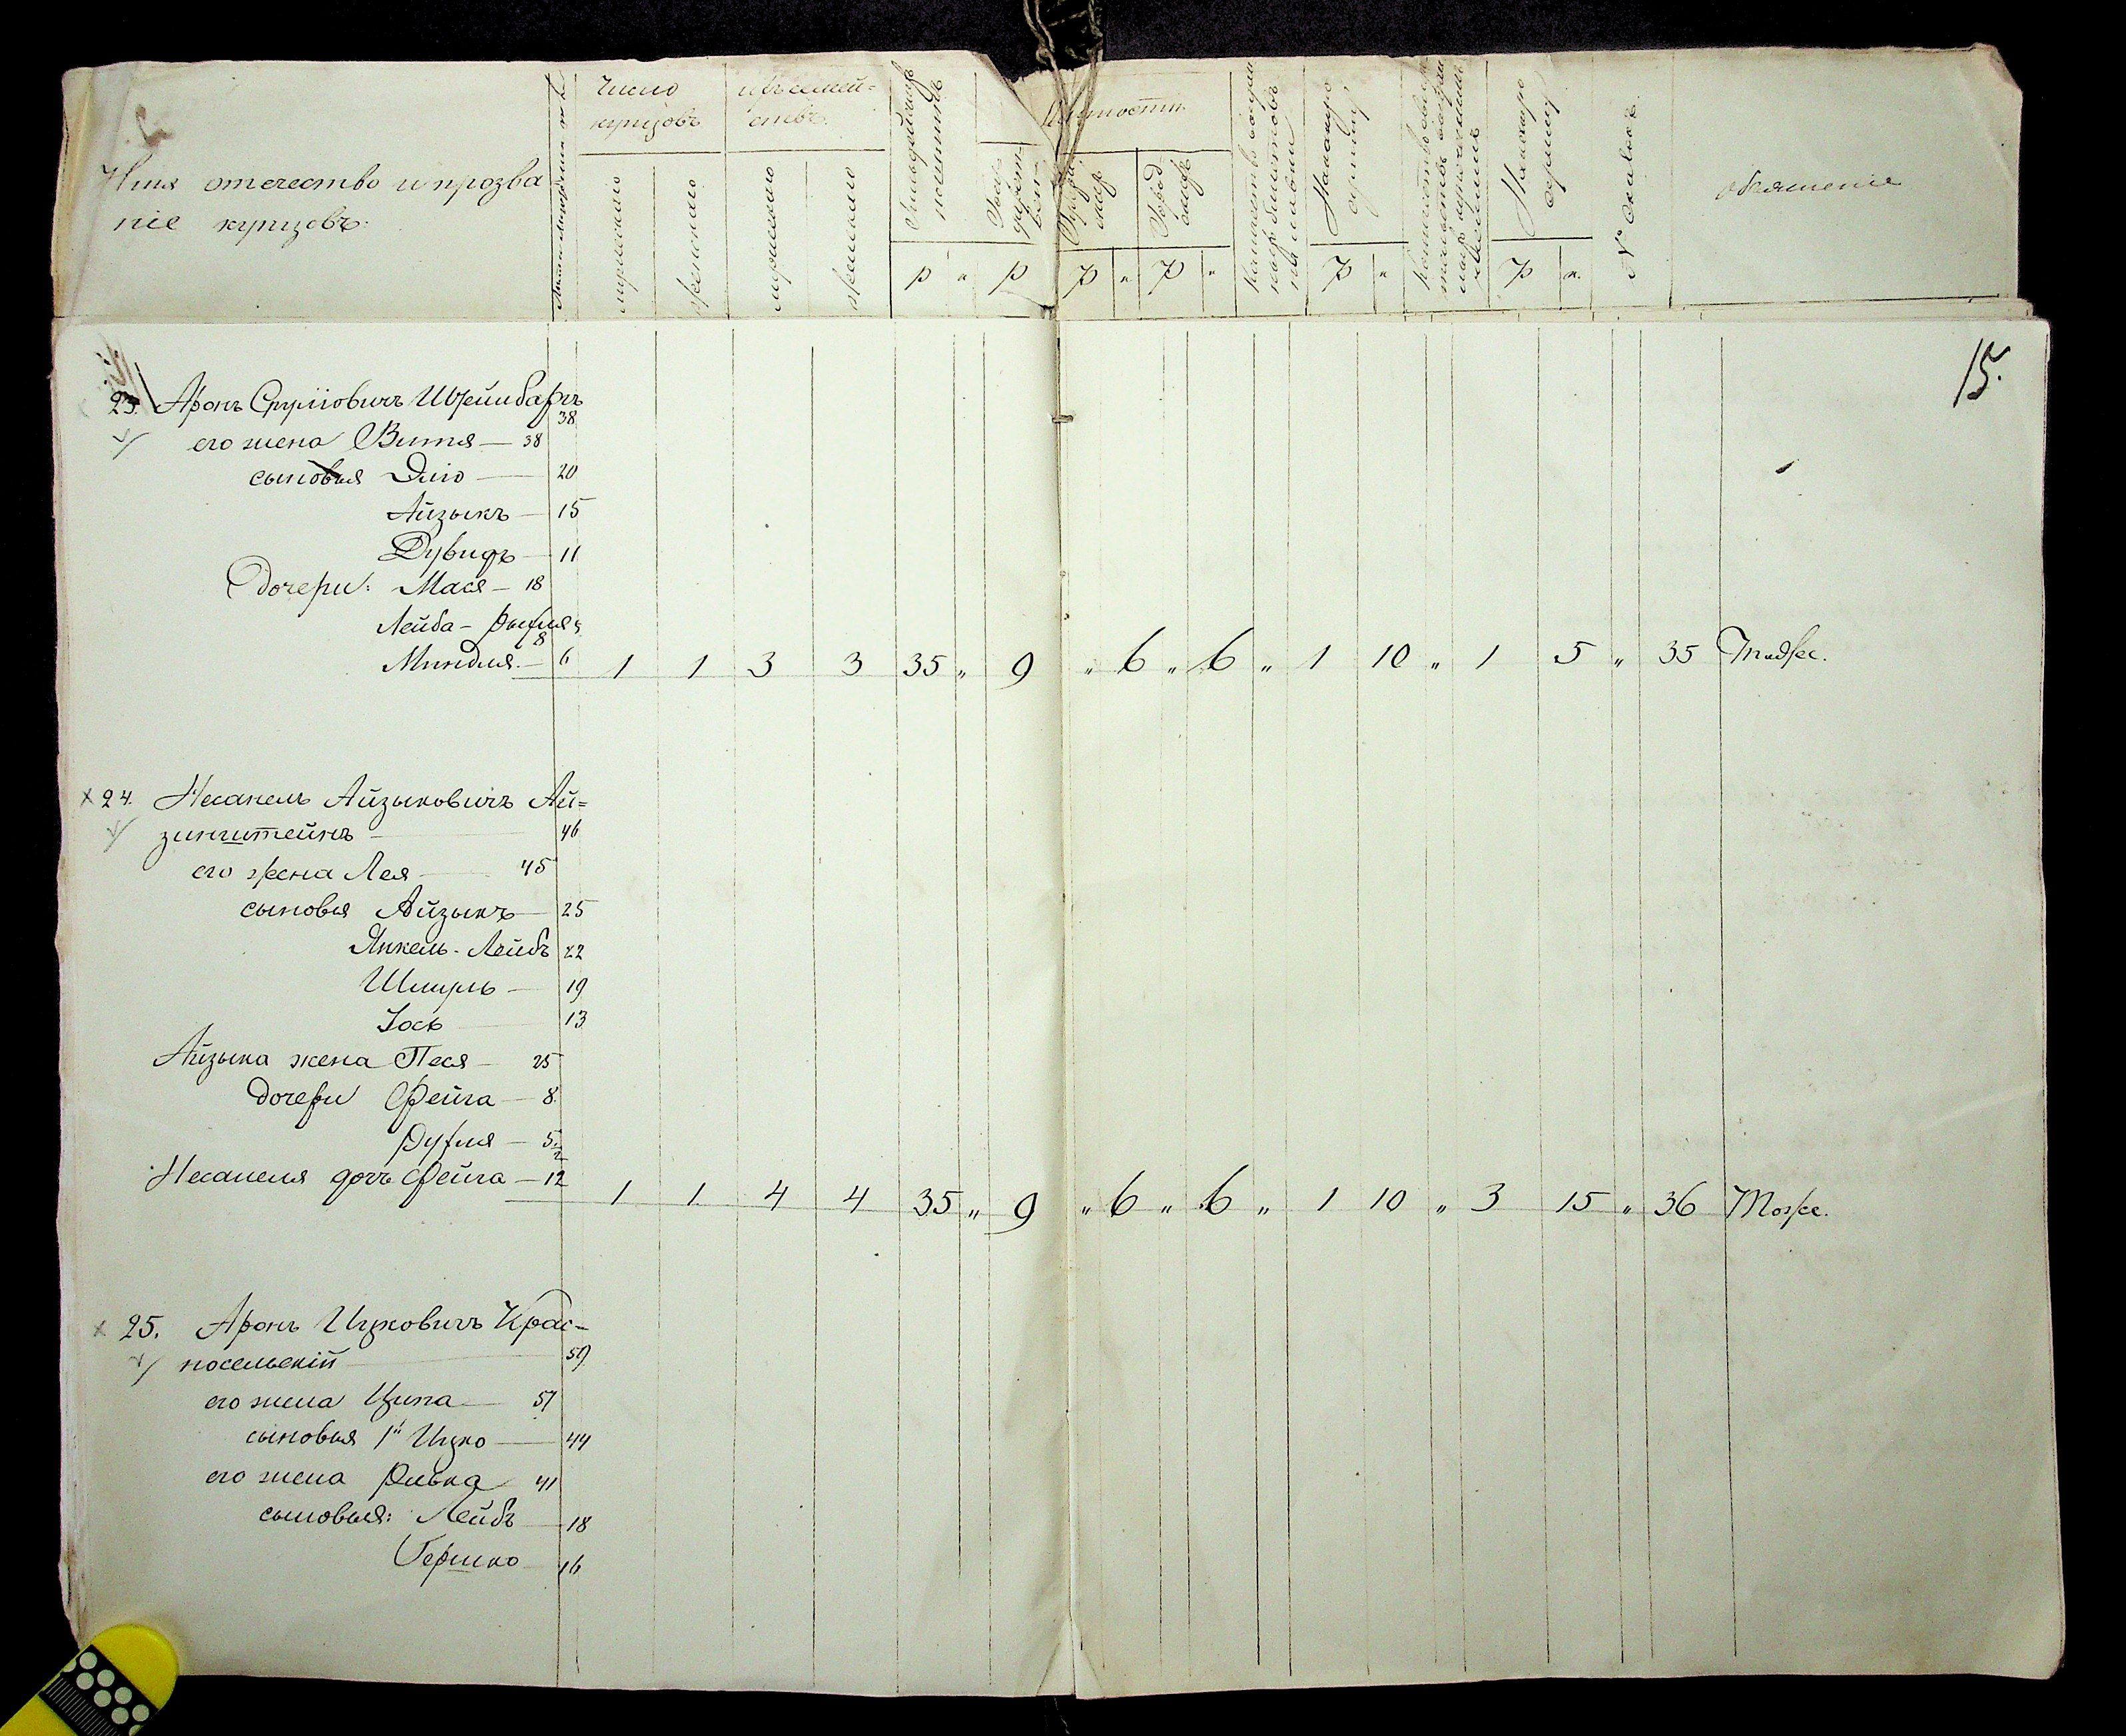 Имя отечество и прозва
ніе купцовъ:
число
купцовъ
и ихъ семей=
ствъ
мужескаго
женскаго
мужескаго
женскаго
Гильдейскихъ
пошлинъ
р
"
р
р
"
р
"
На какую
сумму
р
"
На какую
сумму
р
к.
объясненіе
15.
23. Аронъ Сруліовичъ Штейнбархъ
38
его жена Витя — 38
сыновья Эліо — 20
Айзыкъ — 15
Дувидъ — 11
Дочери: Мася — 18
Лейба –
8
Миндля — 6 1 1 3 3 35 " 9 " 6 " 6 " 1 10 " 1 5 " 35
24. Несанель Айзыковичъ Ай=
зинштейнъ — 46
его жена Лея — 45
сыновья Айзыкъ — 25
Янкель-Лейбъ 22
Шмуль — 19
Іось 13
Айзыка жена Песя — 25
Дочери Фейга — 8
— 5
Несанеля дочь Фейга — 12 1 1 4 4 35 " 9 " 6 " 6 " 1 10 " 3 15 " 36 Тоже.
25. Аронъ Ицковичъ Крас-
носельскій — 59
его жена Ципа — 57
сыновья 1й Ицко — 44
его жена Ривка 41
сыновья: Лейбъ — 18
Гершко — 16